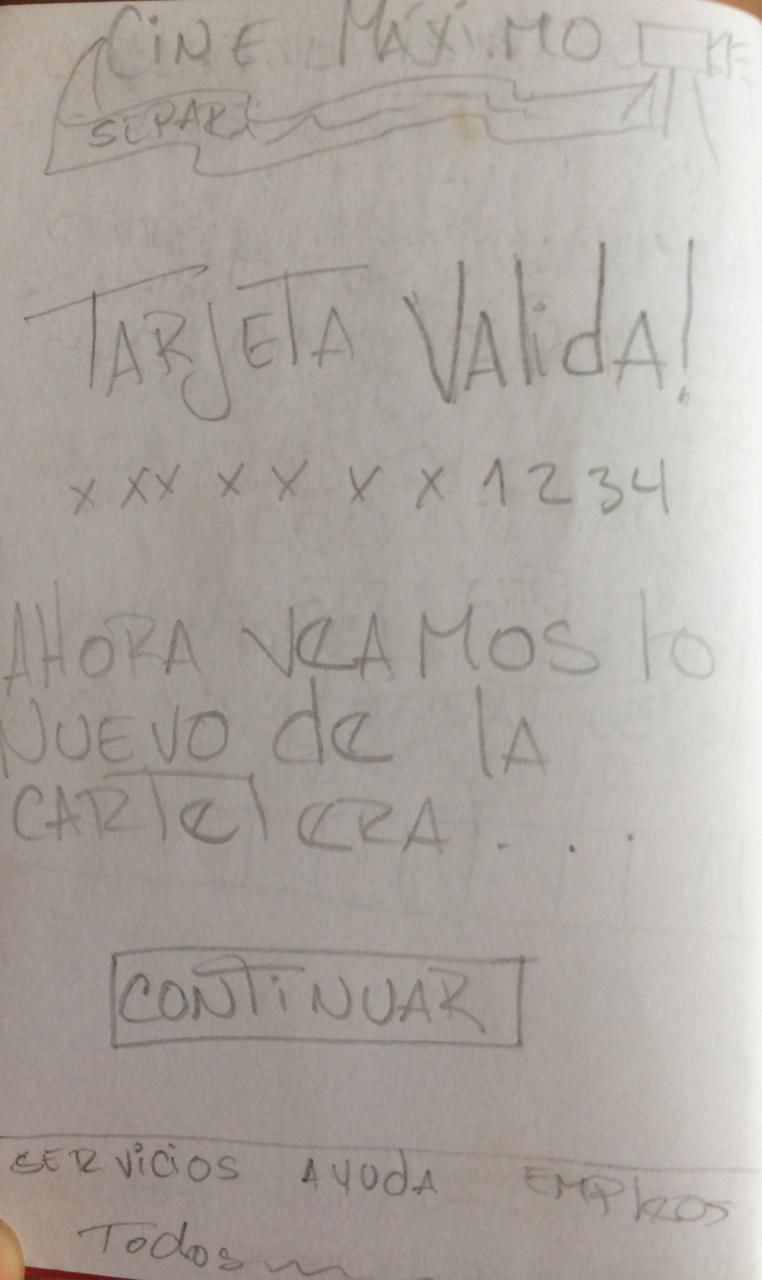 CINE MÁXIMO
SEPARA
TARJETA VALIDA!
XXXXXXX1234
AHORA VEAMOS LO
NUEVO DE LA
CARTELERA...
CONTINUAR
SERVICIOS AYUDA EMPLEOS
Todos